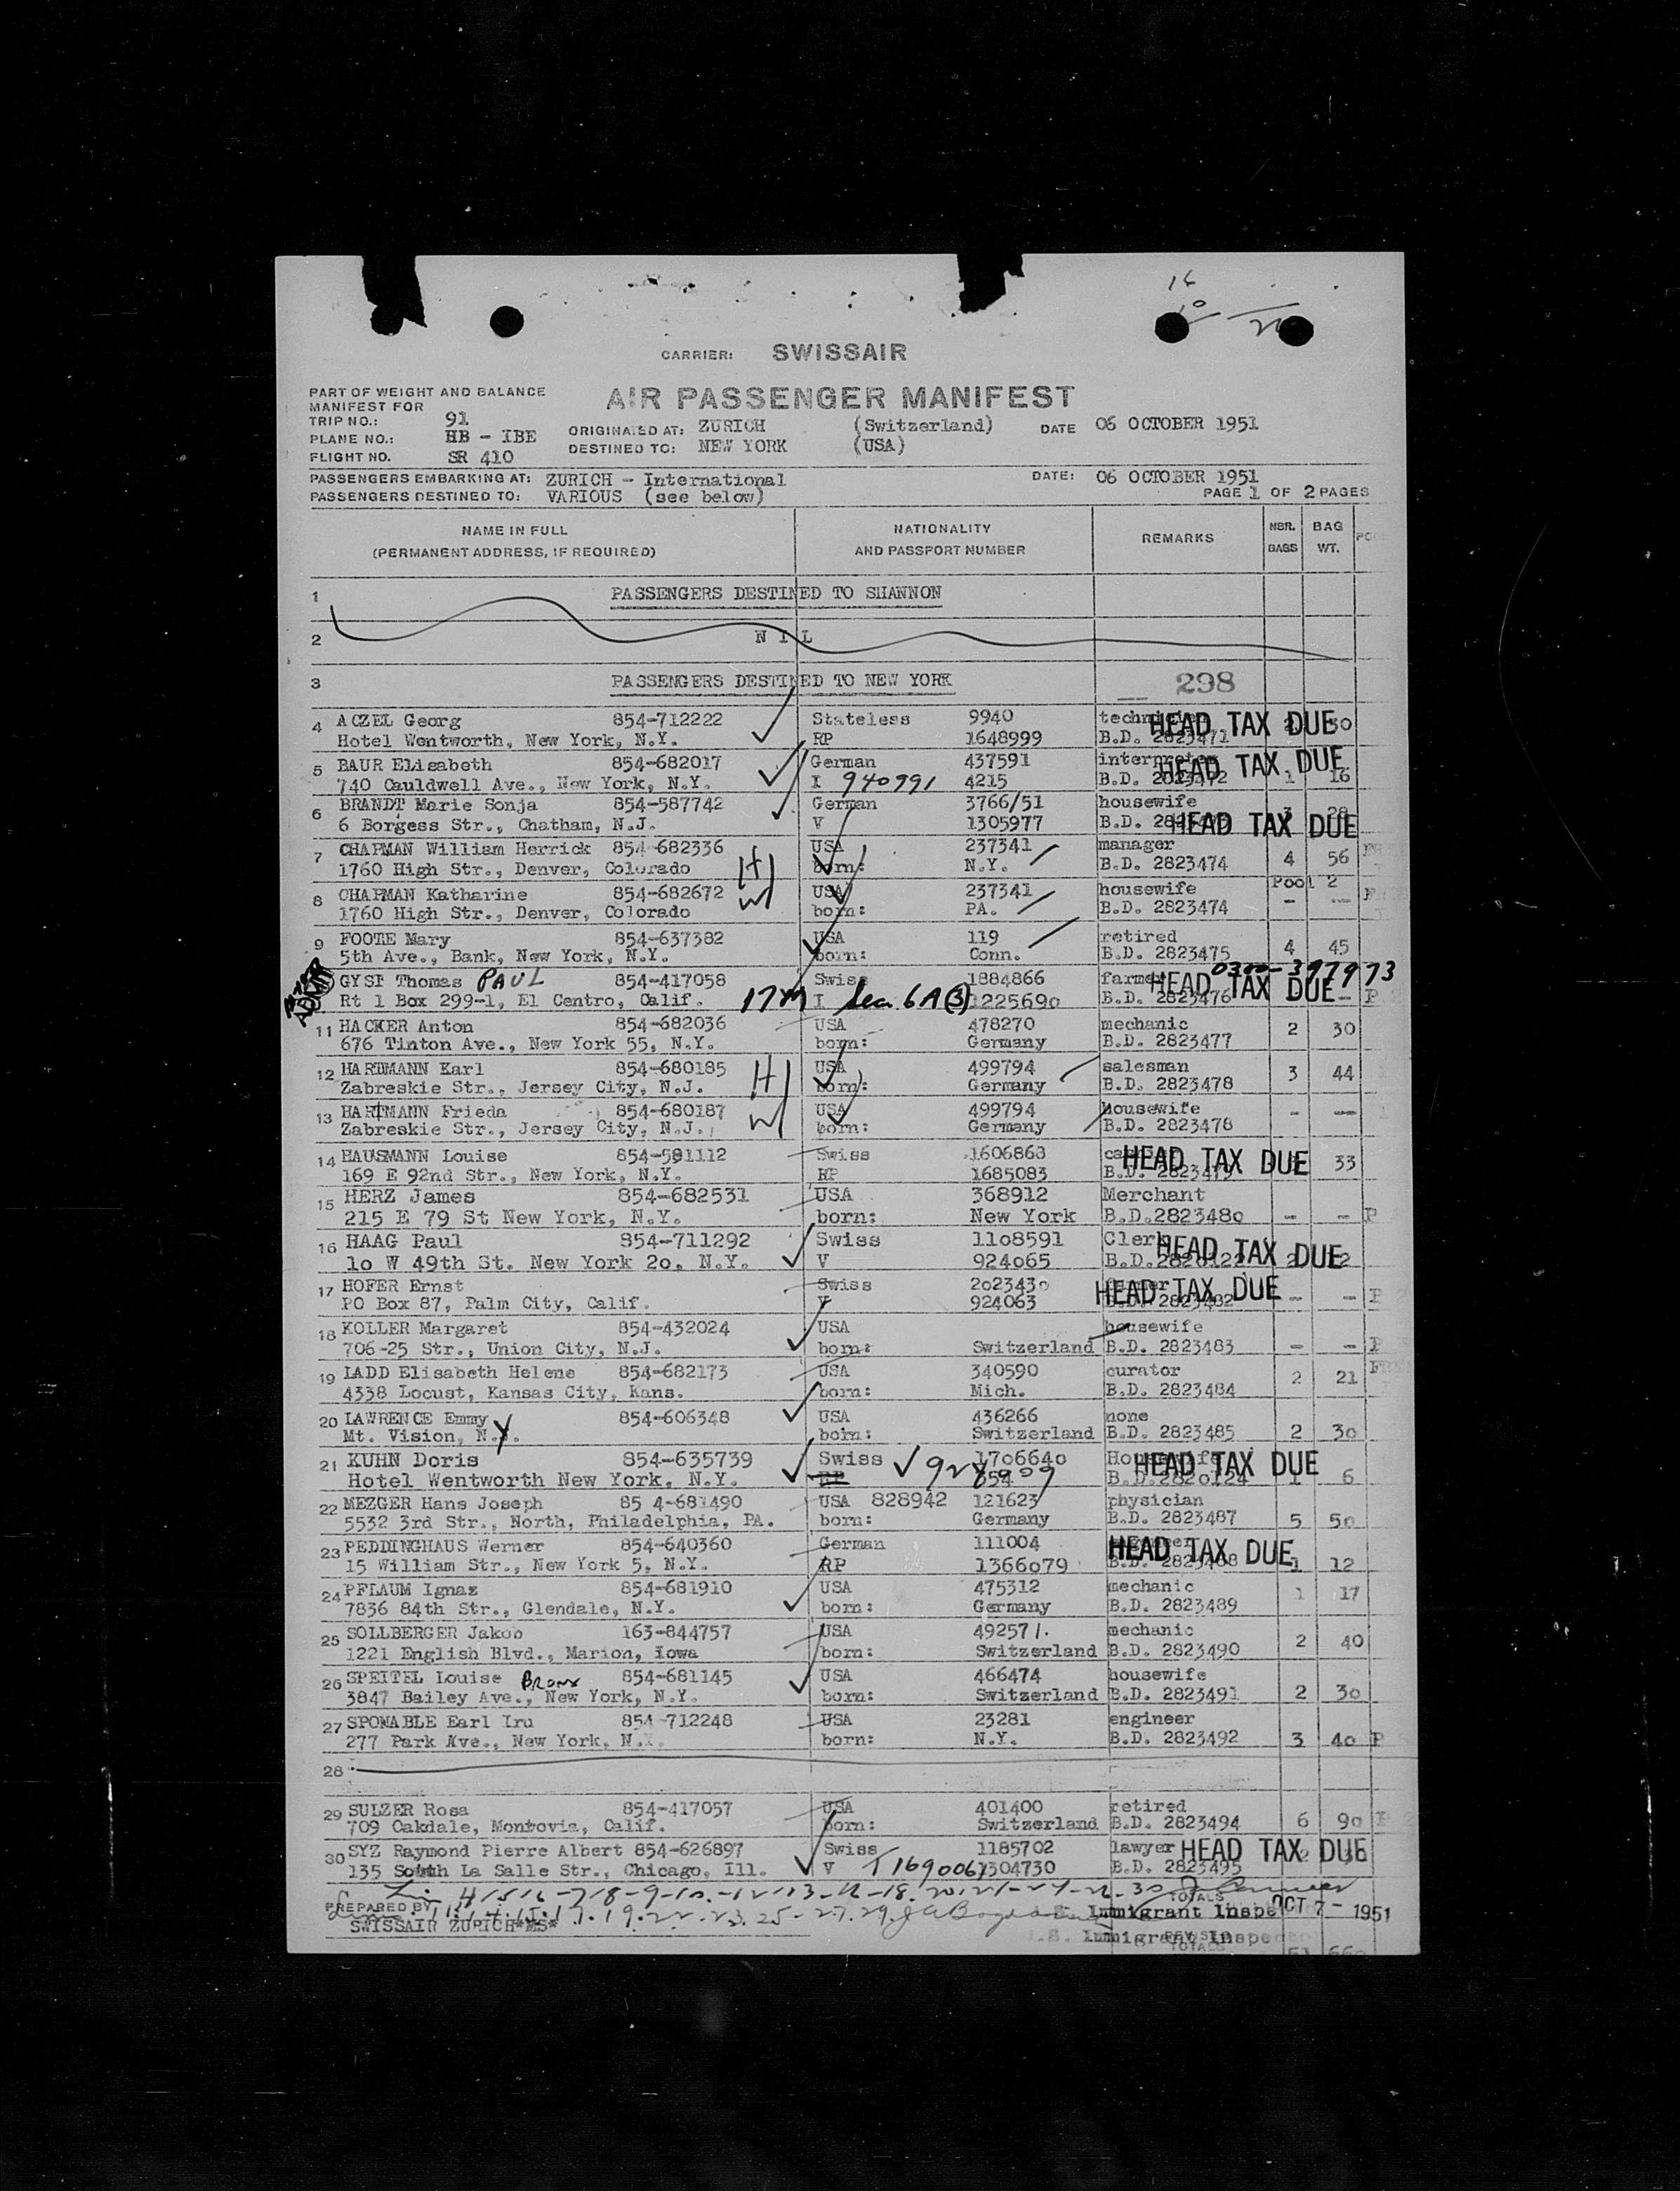 16
10
CARRIER: SWISSAIR
PART OF WEIGHT AND BALANCE
MANIFEST FOR
AIR PASSENGER MANIFEST
TRIP NO.: 91
PLANE NO.: HB - IBE
FLIGHT NO. SR 410
ORIGINATED AT: ZURICH (Switzerland) DATE 06 OCTOBER 1951
DESTINED TO: NEW YORK (USA)
PASSENGERS EMBARKING AT: ZURICH - International DATE: 06 OCTOBER 1951
PASSENGERS DESTINED TO: VARIOUS (see below) PAGE 1 OF 2 PAGES
NAME IN FULL NATIONALITY REMARKS NBR. BAG
(PERMANENT ADDRESS, IF REQUIRED) AND PASSPORT NUMBER BAGS WT.
1 PASSENGERS DESTINED TO SHANNON
2 N I L
3 PASSENGERS DESTINED TO NEW YORK 298
4 ACZEL Georg 854-712222 Stateless 9940 HEAD TAX DUE
Hotel Wentworth, New York, N.Y. RP 1648999 B.D. 2823471
5 BAUR Elisabeth 854-682017 German 437591 interpreter HEAD TAX DUE
740 Cauldwell Ave., New York, N.Y. I 940991 4215 B.D. 2823472 1 16
6 BRANDT Marie Sonja 854-587742 German 3766/51 housewife 3 28
6 Borgess Str., Chatham, N.J. V 1305977 B.D. HEAD TAX DUE
7 CHAPMAN William Herrick 854-682336 USA 237341 manager
1760 High Str., Denver, Colorado H born: N.Y. B.D. 2823474 4 56
8 CHAPMAN Katharine 854-682672 W USA 237341 housewife Pool 2
1760 High Str., Denver, Colorado born: PA. B.D. 2823474 - --
9 FOOTE Mary 854-637382 USA 119 retired
5th Ave., Bank, New York, N.Y. born: Conn. B.D. 2823475 4 45
ADMIT GYSI Thomas PAUL 854-417058 Swiss 1884866 farmer 0300-397973
Rt 1 Box 299-1, El Centro, Calif. I Sec. 6A(3) 1225690 B.D. 2823476 HEAD TAX DUE - P
11 HACKER Anton 854-682036 USA 478270 mechanic 2 30
676 Tinton Ave., New York 55, N.Y. born: Germany B.D. 2823477
12 HARTMANN Karl 854-680185 H USA 499794 salesman 3 44
Zabreskie Str., Jersey City, N.J. born: Germany B.D. 2823478
13 HARTMANN Frieda 854-680187 W USA 499794 housewife - --
Zabreskie Str., Jersey City, N.J. born: Germany B.D. 2823478
14 HAUSMANN Louise 854-581112 Swiss 1606863 HEAD TAX DUE 33
169 E 92nd Str., New York, N.Y. RP 1685083 B.D. 2823479
15 HERZ James 854-682531 USA 368912 Merchant
215 E 79 St New York, N.Y. born: New York B.D.2823480 - - P
16 HAAG Paul 854-711292 Swiss 1108591 Clerk HEAD TAX DUE
10 W 49th St. New York 20, N.Y. V 924065
17 HOFER Ernst Swiss 2023430 farmer HEAD TAX DUE
PO Box 87, Palm City, Calif. V 924063 B.D. 2823482 - - P
18 KOLLER Margaret 854-432024 USA housewife
706-25 Str., Union City, N.J. born: Switzerland B.D. 2823483 - - P
19 LADD Elisabeth Helene 854-682173 USA 340590 curator
4338 Locust, Kansas City, Kans. born: Mich. B.D. 2823484 2 21
20 LAWRENCE Emmy 854-606348 USA 436266 none
Mt. Vision, N.Y. born: Switzerland B.D. 2823485 2 30
21 KUHN Doris 854-635739 Swiss 1706640 Housewife HEAD TAX DUE
Hotel Wentworth New York, N.Y. B.D.2820124 1 6
22 MEZGER Hans Joseph 85 4-681490 USA 828942 121623 physician
5532 3rd Str., North, Philadelphia, PA. born: Germany B.D. 2823487 5 50
23 PEDDINGHAUS Werner 854-640360 German 111004 HEAD TAX DUE
15 William Str., New York 5, N.Y. RP 1366079 B.D. 2823488 1 12
24 PFLAUM Ignaz 854-681910 USA 475312 mechanic 1 17
7836 84th Str., Glendale, N.Y. born: Germany B.D. 2823489
25 SOLLBERGER Jakob 163-844757 USA 492571. mechanic 2 40
1221 English Blvd., Marion, Iowa born: Switzerland B.D. 2823490
26 SPEITEL Louise Bronx 854-681145 USA 466474 housewife
3847 Bailey Ave., New York, N.Y. born: Switzerland B.D. 2823491 2 30
27 SPONABLE Earl Iru 854-712248 USA 23281 engineer
277 Park Ave., New York, N.Y. born: N.Y. B.D. 2823492 3 40 P
28
29 SULZER Rosa 854-417057 USA 401400 retired
709 Oakdale, Monrovia, Calif. born: Switzerland B.D. 2823494 6 90 P
30 SYZ Raymond Pierre Albert 854-626897 Swiss 1185702 lawyer HEAD TAX DUE
135 South La Salle Str., Chicago, Ill. V T 1690061 1304730 B.D. 2823495
PREPARED BY TOTALS
SWISSAIR ZURICH*MS* Immigrant Inspe OCT 7 - 1951
Immigrant Inspector
TOTALS